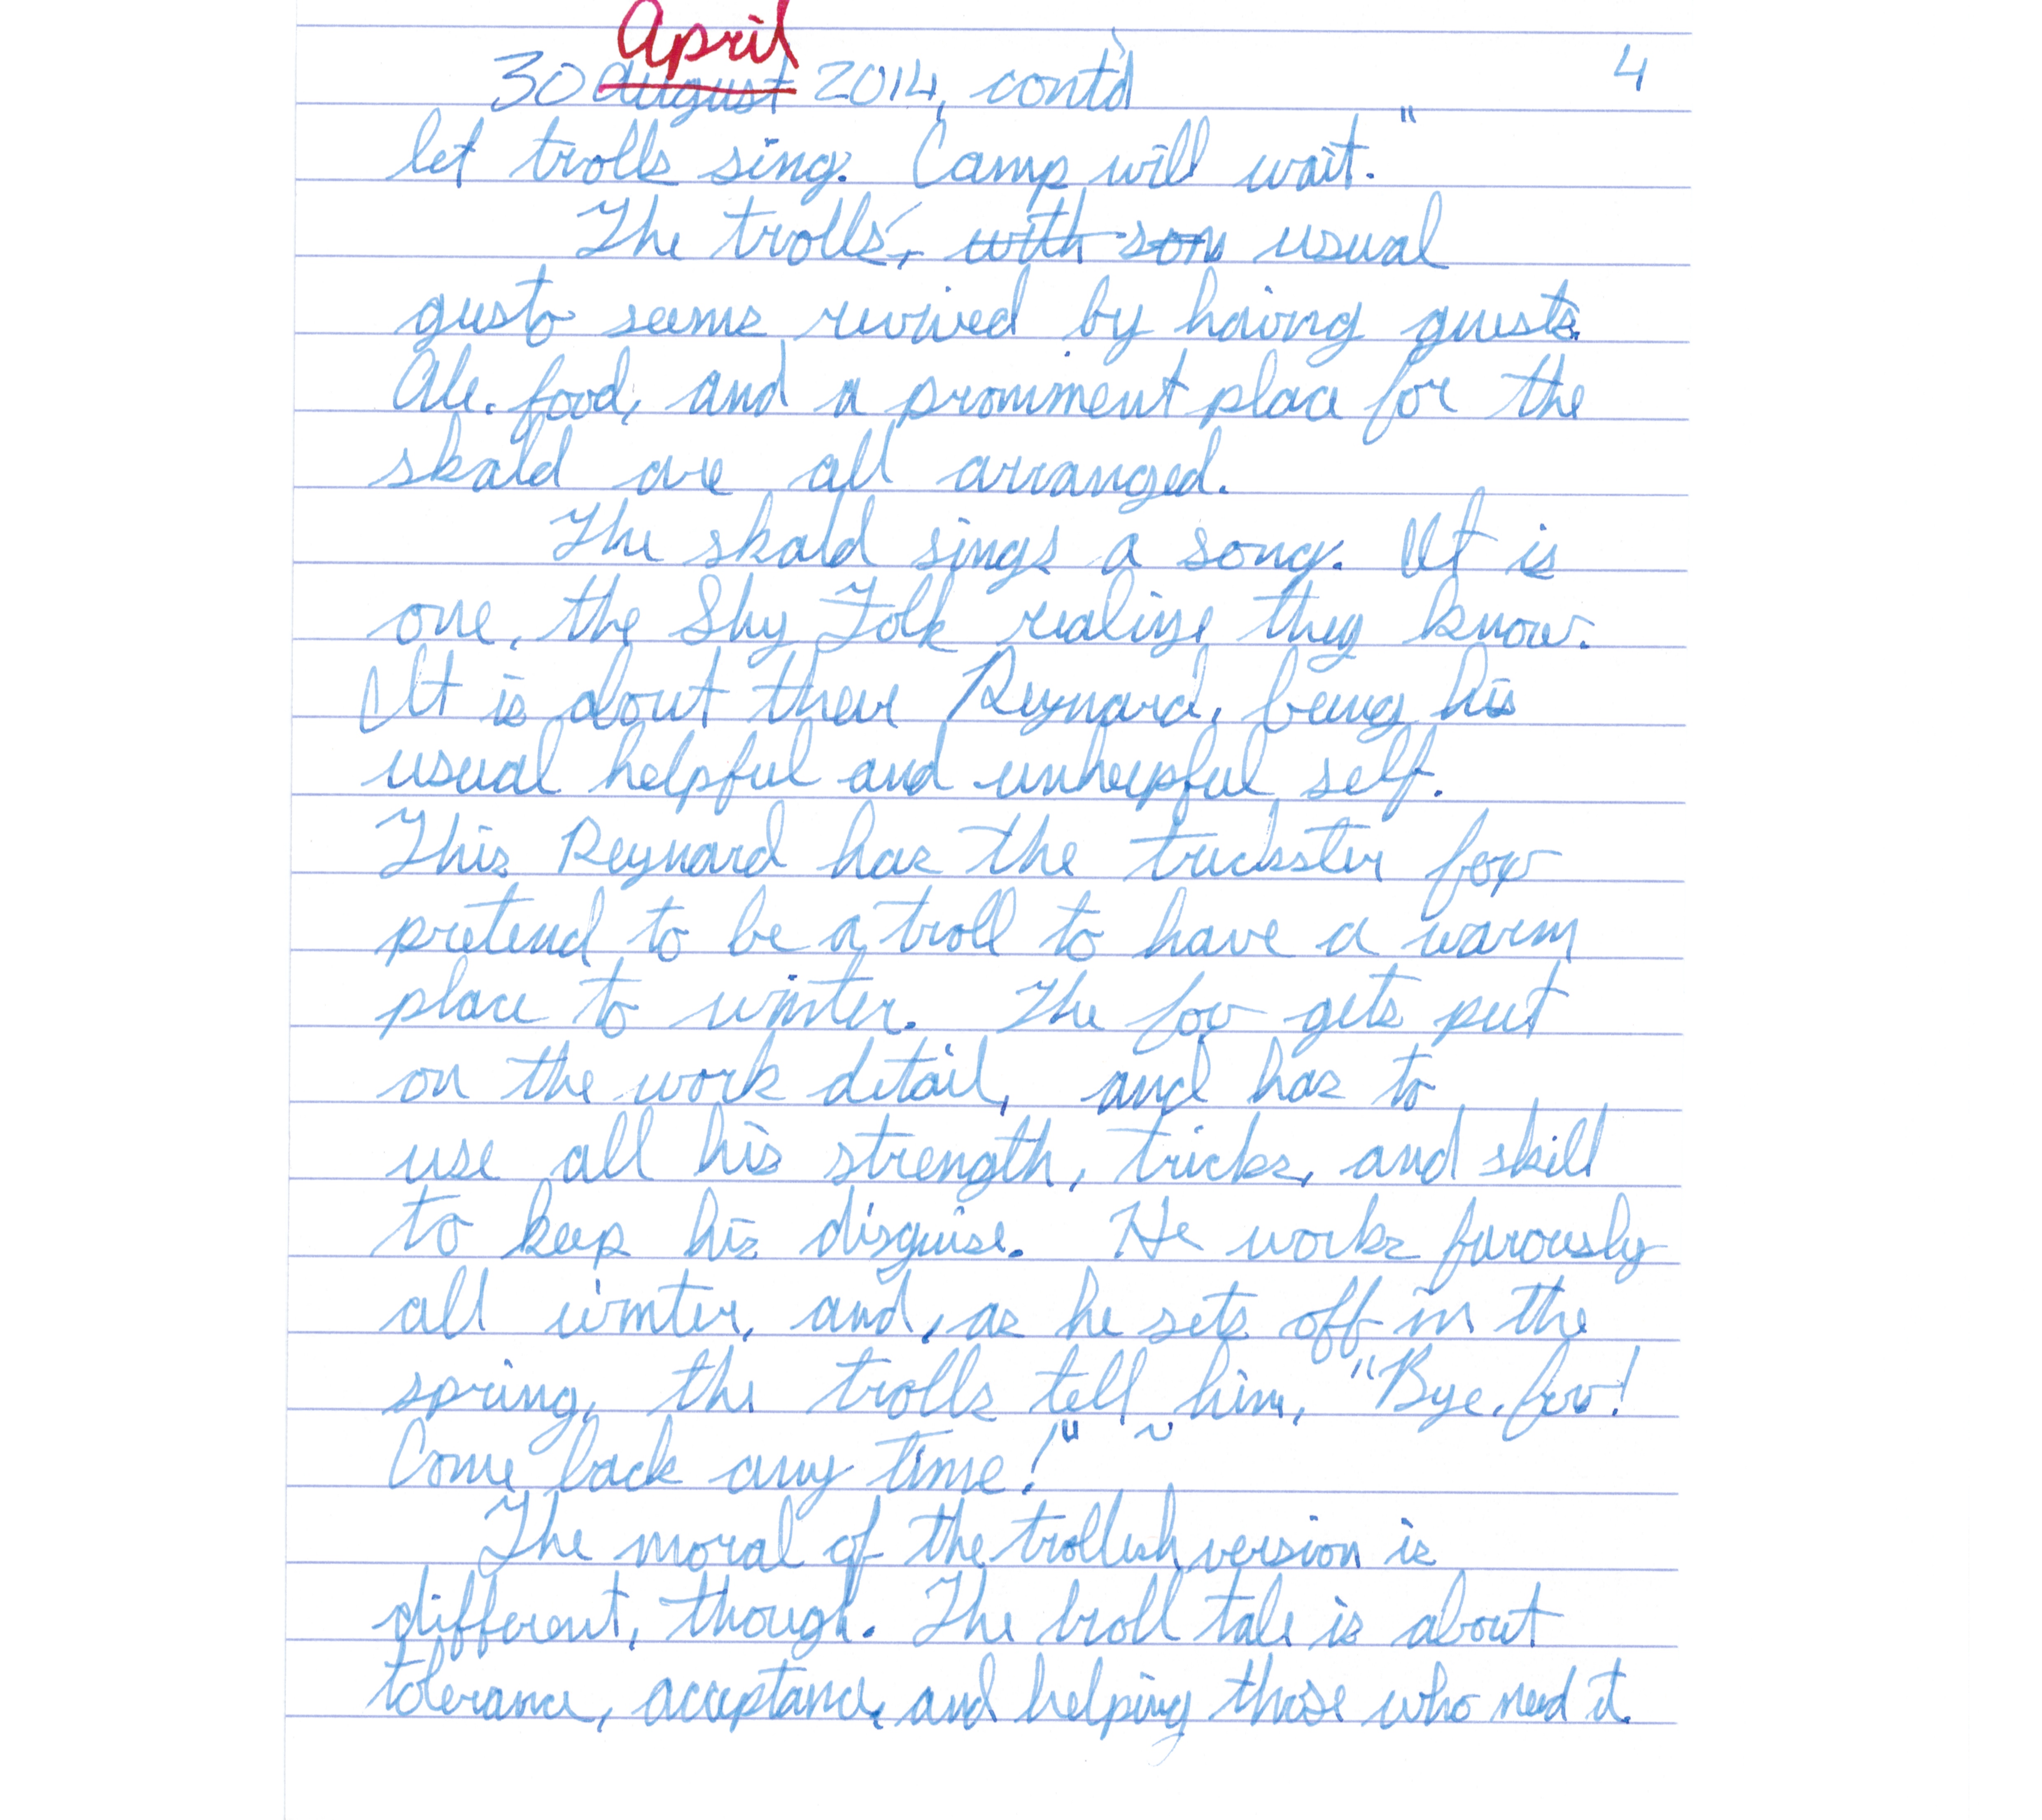 April
30 august 2014, cont'd 4
let trolls sing. Camp will wait."
The trolls', with son usual
gusto seems revived by having guests.
Ale, food, and a prominent place for the
skald are all arranged.
The skald sings a song. It is
one, the Shy Folk realize, they know.
It is about there Reynard, being his
usual helpful and unhelpful self.
This Reynard has the trickster fox
pretend to be a troll to have a warm
place to winter. The fox gets put
on the work detail, and has to
use all his strength, tricks, and skill
to keep his disguise. He works furously
all winter, and, as he sets off in the
spring, the trolls tell him, "Bye, fox!
Come back any time!"
The moral of the trollish version is
different, though. The troll tale is about
tolerance, acceptance, and helping those who need it.